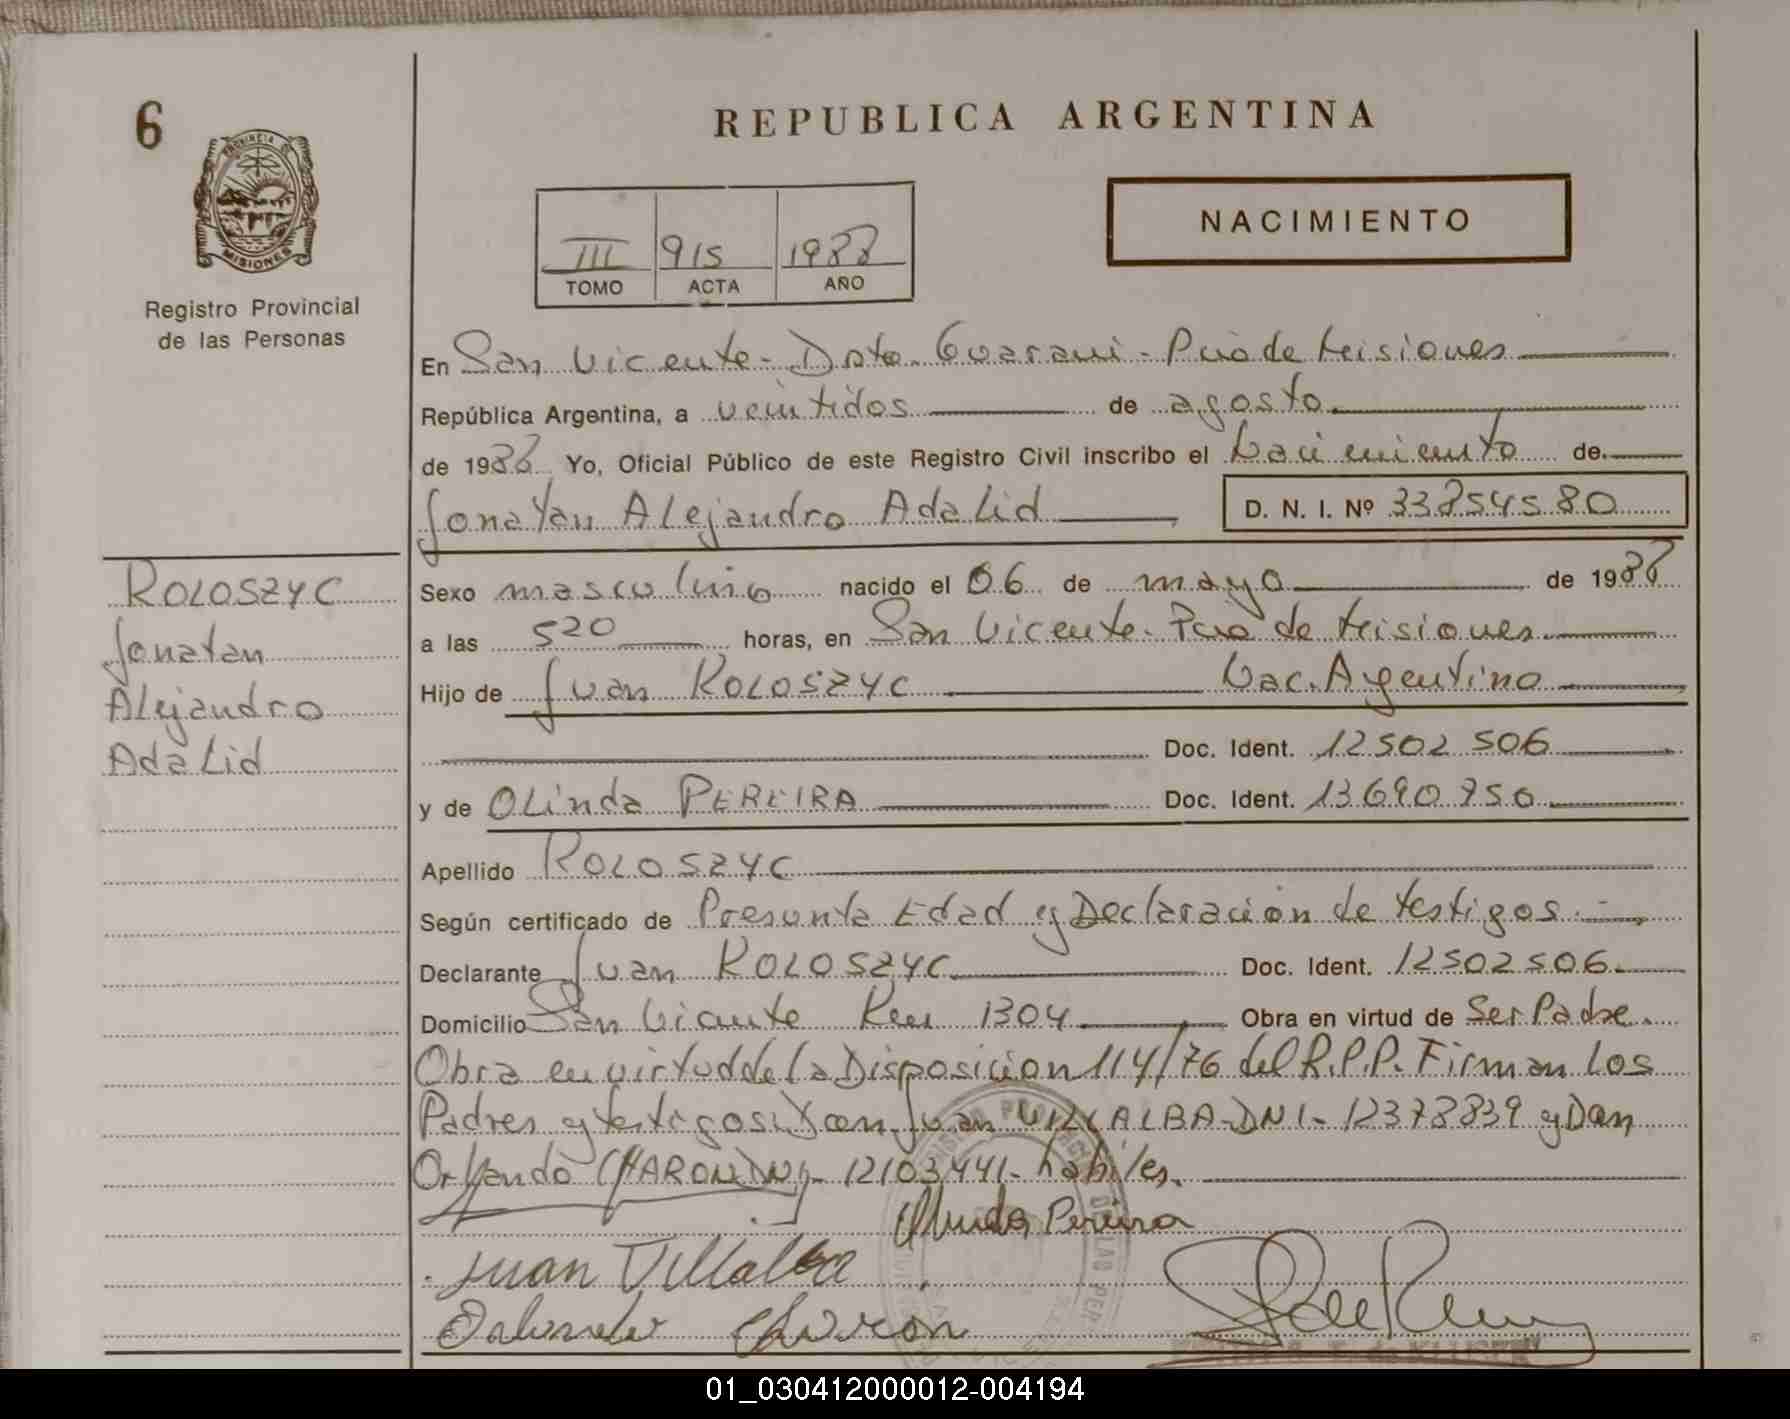 6
PROVINCIA DE
MISIONES
Registro Provincial
de las Personas
REPUBLICA ARGENTINA
NACIMIENTO
III 915 1988
TOMO ACTA AÑO
En San Vicente - Dpto. Guarani - Pcia de Misiones
República Argentina, a veintidos de agosto
de 1988 Yo, Oficial Público de este Registro Civil inscribo el Nacimiento de
Jonatan Alejandro Adalid D. N. I. Nº 33854580
ROLOSZYC
Jonatan
Alejandro
Adalid
Sexo masculino nacido el 06 de mayo de 1988
a las 520 horas, en San Vicente - Pcia de Misiones
Hijo de Juan ROLOSZYC Nac. Argentino
Doc. Ident. 12502506
y de OLinda PEREIRA Doc. Ident. 13690950
Apellido ROLOSZYC
Según certificado de Presunta Edad y Declaración de testigos.
Declarante Juan ROLOSZYC Doc. Ident. 12502506
Domicilio San Vicente Km 1304 Obra en virtud de Ser Padre.
Obra en virtud de la Disposición 114/76 del R.P.P. Firman los
Padres y testigos: Don Juan VILLALBA - DNI - 12378839 y Don
Orlando CHARON DNI - 12103441 - habiles.
Olinda Pereira
Juan Villalba
Orlando Charon
01_030412000012-004194